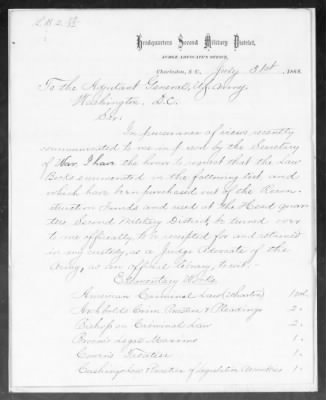 Headquarters Second Military District,
JUDGE ADVOCATE'S OFFICE,
Charleston, S.C., July 31st, 1868.
To the Adjutant General, U.S. Army,
Washington, D.C.
Sir,
In pursuance of views recently
communicated to me in person by the Secretary
of War, I have the honor to request that the Law
Books enumerated in the following list and
which have been purchased out of the Recon-
struction Funds and used at the Head quar-
ters Second Military District, be turned over
to me officially, to be receipted for and retained
in my custody, as a Judge Advocate of the
Army, as an official library, to wit:-
Elementary Works
American Criminal Law (Wharton) 1 vol.
Archbolds Crim. Practice & Pleadings 2 "
Bishop on Criminal Law 2 "
Broom's Legal Maxims 1 "
Cowen's Treatise 1 "
Cushings Law & Practice of Legislative Assemblies 1 "